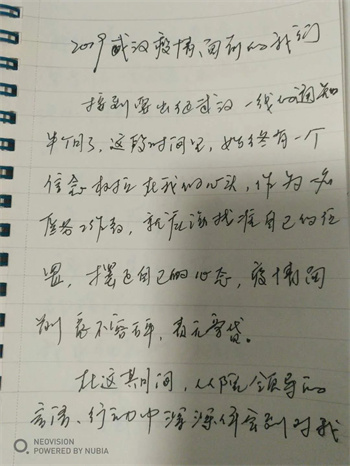 2019武汉疫情、面前的我们
接到要出征武汉一线的通知
半个月了，这段时间里，始终有一个
信念树立在我的心头，作为一名
医务工作者，就应该找准自己的位
置，摆正自己的心态，疫情面
前 责不容辞，责无旁贷。
在这期间，从院领导的
言语、行动中深深体会到对我
NEOVISION
POWERED BY NUBIA